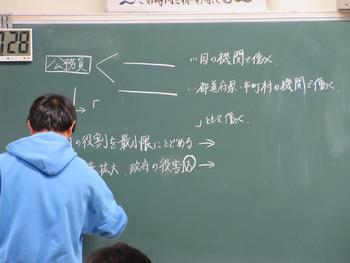 この時間を
128
公務員
…国の機関で働く
…都道府県・市町村の機関で働く
「
」として働く
の役割を最小限にとどめる→
拡大、政府の役割大→